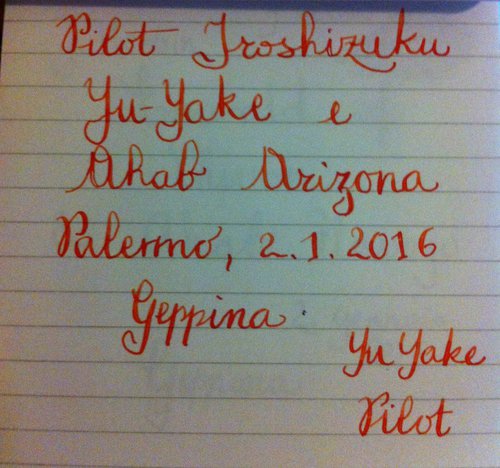 Pilot Iroshizuku
Yu-Yake e
Ahab Arizona
Palermo, 2.1.2016
Geppina.
Yu Yake
Pilot